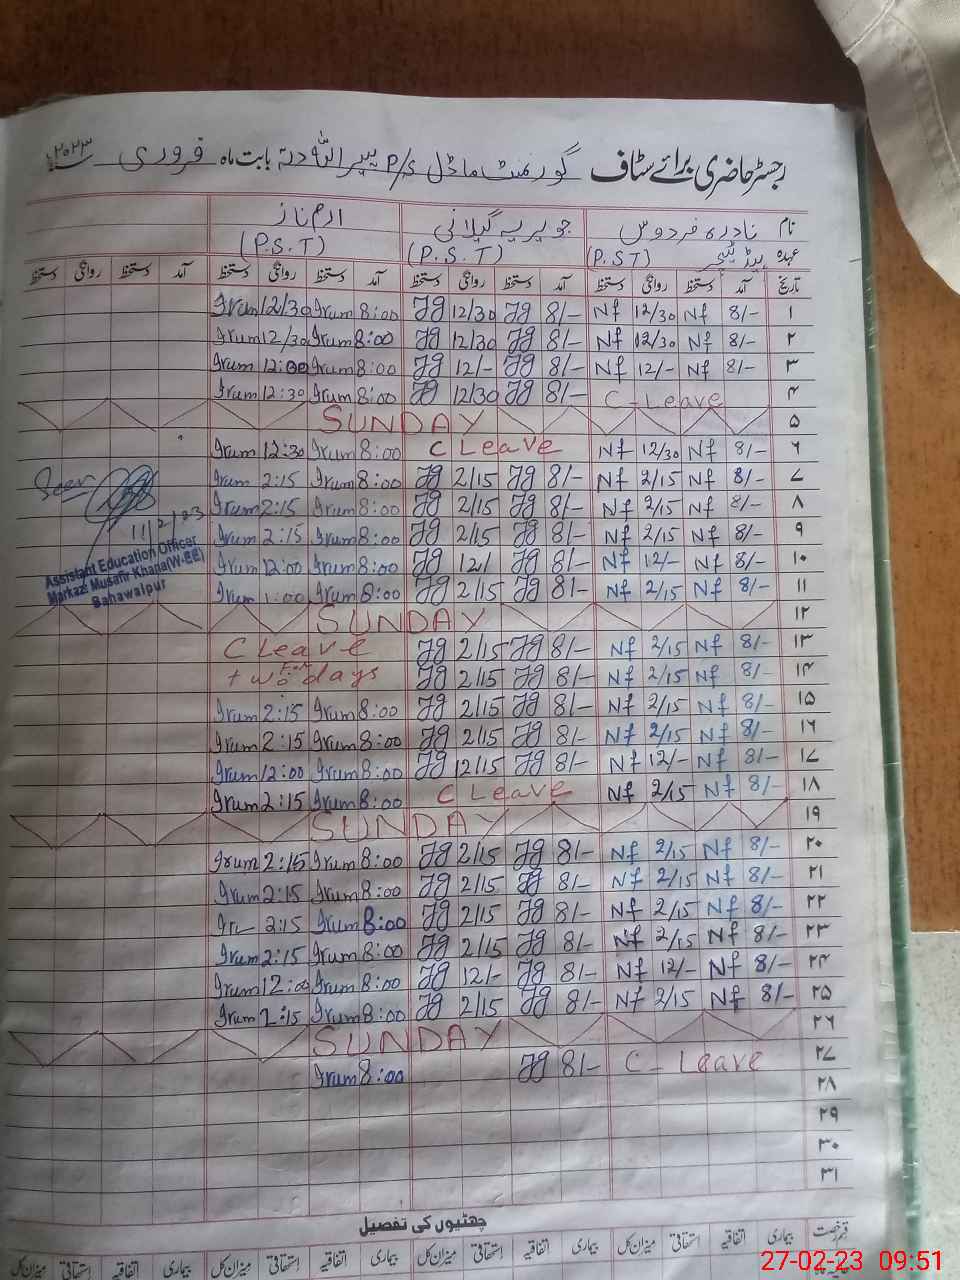 رجسٹر حاضری برائے سٹاف گورنمنٹ ماڈل P/S پیر اللہ دتہ بابت ماہ فروری ۲۰۲۳
نام نادرہ فردوس جویریہ گیلانی ارم ناز
عہدہ ہیڈ ٹیچر (P.S.T) (P.S.T) (P.S.T)
تاریخ آمد دستخط روانگی دستخط آمد دستخط روانگی دستخط آمد دستخط روانگی دستخط آمد دستخط روانگی دستخط
۱ 8/- Nf 12/30 Nf 8/- Jg 12/30 Jg 8:00 Irum 12/30 Irum
۲ 8/- Nf 12/30 Nf 8/- Jg 12/30 Jg 8:00 Irum 12/30 Irum
۳ 8/- Nf 12/- Nf 8/- Jg 12/- Jg 8:00 Irum 12:00 Irum
۴ C-Leave 8/- Jg 12/30 Jg 8:00 Irum 12:30 Irum
۵ SUNDAY
۶ 8/- Nf 12/30 Nf C Leave 8:00 Irum 12:30 Irum
۷ 8/- Nf 2/15 Nf 8/- Jg 2/15 Jg 8:00 Irum 2:15 Irum
۸ 8/- Nf 2/15 Nf 8/- Jg 2/15 Jg 8:00 Irum 2:15 Irum
۹ 8/- Nf 2/15 Nf 8/- Jg 2/15 Jg 8:00 Irum 2:15 Irum
۱۰ 8/- Nf 12/- Nf 8/- Jg 12/ Jg 8:00 Irum 12:00 Irum
۱۱ 8/- Nf 2/15 Nf 8/- Jg 2/15 Jg 8:00 Irum 1:00 Irum
Seen
11/2/23
Assistant Education Officer
Markaz: Musafir Khana(W-EE)
Bahawalpur
۱۲ SUNDAY
۱۳ 8/- Nf 2/15 Nf 8/- Jg 2/15 Jg C Leave
۱۴ 8/- Nf 2/15 Nf 8/- Jg 2/15 Jg For two days
۱۵ 8/- Nf 2/15 Nf 8/- Jg 2/15 Jg 8:00 Irum 2:15 Irum
۱۶ 8/- Nf 2/15 Nf 8/- Jg 2/15 Jg 8:00 Irum 2:15 Irum
۱۷ 8/- Nf 12/- Nf 8/- Jg 12/15 Jg 8:00 Irum 12:00 Irum
۱۸ 8/- Nf 2/15 Nf C Leave 8:00 Irum 2:15 Irum
۱۹ SUNDAY
۲۰ 8/- Nf 2/15 Nf 8/- Jg 2/15 Jg 8:00 Irum 2:15 Irum
۲۱ 8/- Nf 2/15 Nf 8/- Jg 2/15 Jg 8:00 Irum 2:15 Irum
۲۲ 8/- Nf 2/15 Nf 8/- Jg 2/15 Jg 8:00 Irum 2:15
۲۳ 8/- Nf 2/15 Nf 8/- Jg 2/15 Jg 8:00 Irum 2:15 Irum
۲۴ 8/- Nf 12/- Nf 8/- Jg 12/- Jg 8:00 Irum 12:00 Irum
۲۵ 8/- Nf 2/15 Nf 8/- Jg 2/15 Jg 8:00 Irum 2:15 Irum
۲۶ SUNDAY
۲۷ C-Leave 8/- Jg 8:00 Irum
۲۸
۲۹
۳۰
۳۱
چھٹیوں کی تفصیل
قسم رخصت بیماری اتفاقیہ استحقاقی میزان کل بیماری اتفاقیہ استحقاقی میزان کل بیماری اتفاقیہ استحقاقی میزان کل بیماری اتفاقیہ استحقاقی میزان کل
27-02-23 09:51